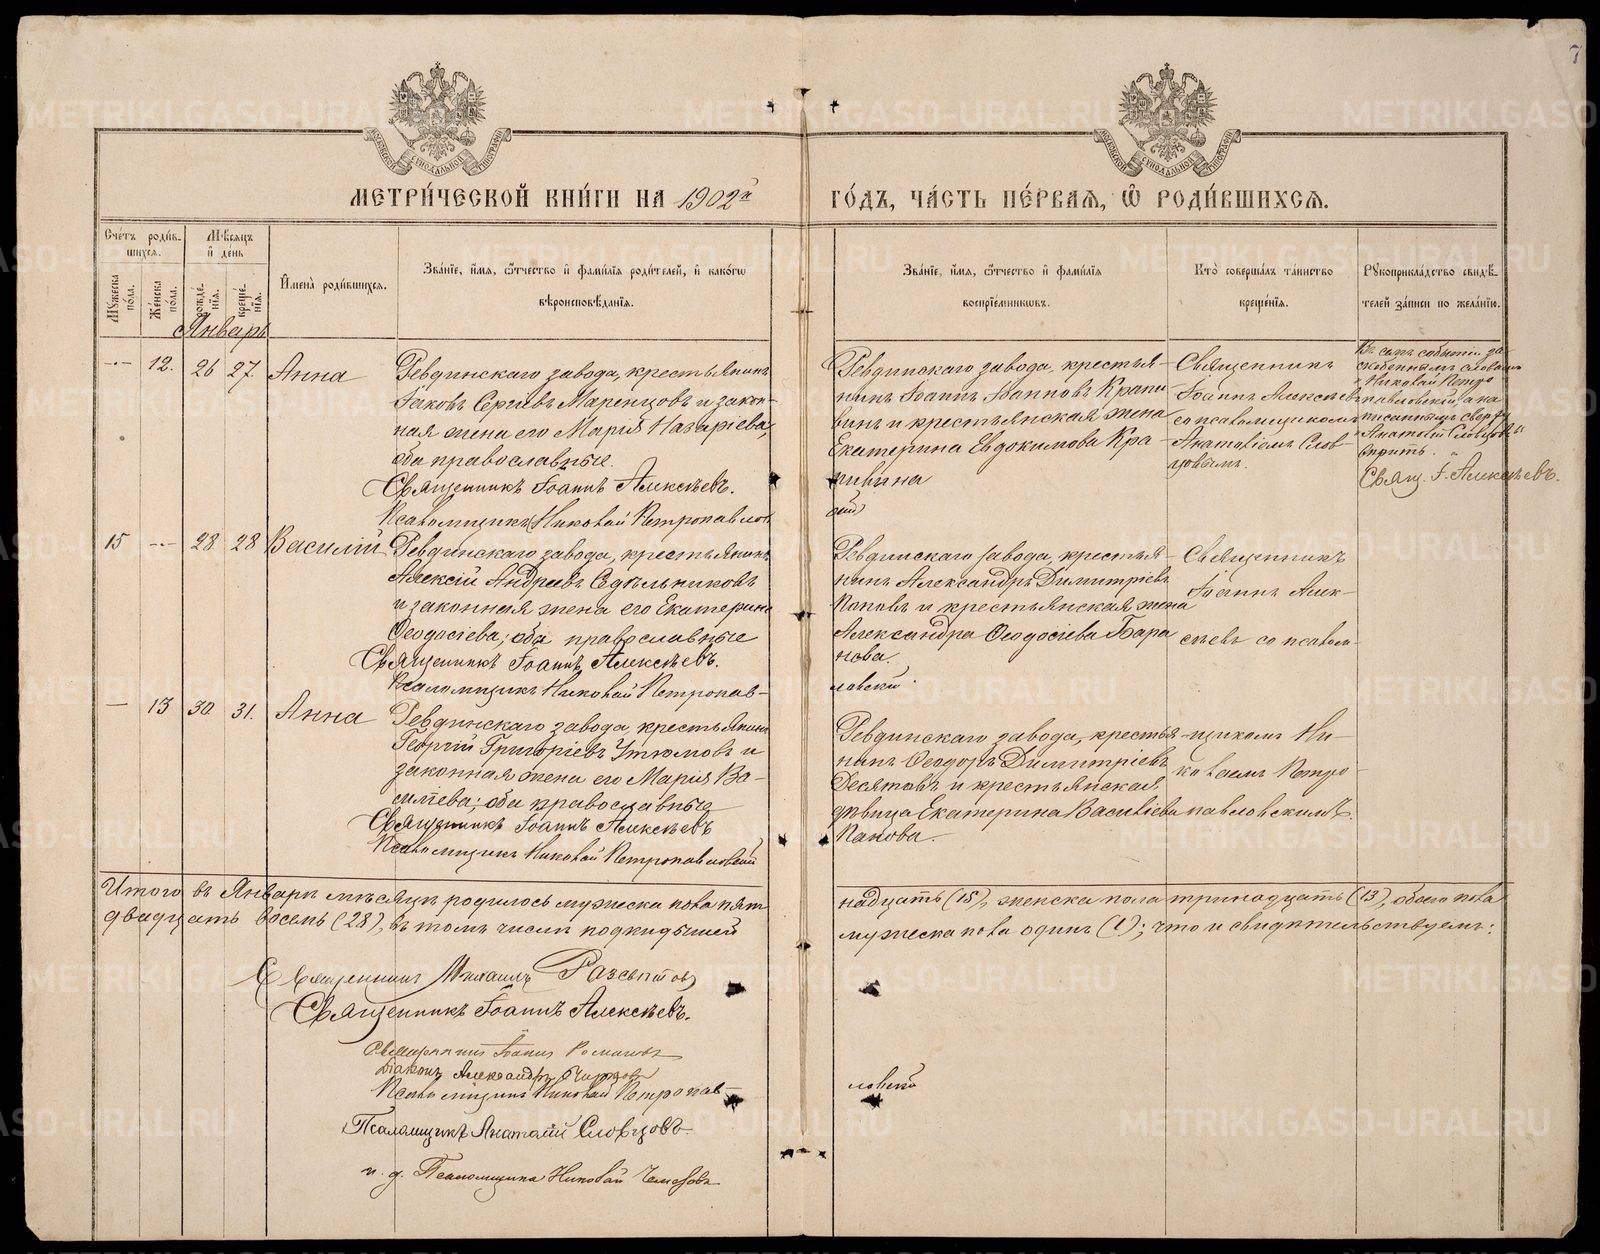 7
МЕТРИ́ЧЕСКОЙ КНИ́ГИ НА 1902й ГО́ДЪ, ЧА́СТЬ ПЕ́РВАЯ, Ѿ РОДИ́ВШИХСЯ.
Сче́тъ роди́в-
шихся.
Мѣ́сяцъ
и҆ день
Мꙋ́жеска по́ла.
Же́нска по́ла.
рожде́-
нїѧ.
креще́-
нїѧ.
И҆мена̀ роди́вшихся.
Зва́нїе, и҆́мѧ, ѻ҆́тчество и҆ фами́лїѧ роди́телей, и҆ како́гѡ
вѣроисповѣ́данїѧ.
Зва́нїе, и҆́мѧ, ѻ҆́тчество и҆ фами́лїѧ
воспрїе́мниковъ.
Кто̀ соверша́лъ та́инство
креще́нїѧ.
Рꙋкоприкла́дство свидѣ́-
телей за́писи по жела́нїю.
Январь
–·– 12. 26 27. Анна
Ревдинскаго завода, крестьянинъ
Іаковъ Сергіевъ Маренцовъ и закон-
ная жена его Марія Назаріева,
оба православные.
Священникъ Іоаннъ Алексѣевъ.
Псаломщикъ Николай Петропавлов
Ревдинскаго завода, крестья-
нинъ Іоаннъ Іоанновъ Крапи
винъ и крестьянская жена
Екатерина Евдокимова Кра-
пивина
скій
Священникъ
Іоаннъ Алексѣевъ
со псаломщикомъ
Анатоліемъ Слов-
цовымъ.
Въ семъ событіи за-
скобеннымъ словамъ
"Николай Петро
павловскій", а на
писаннымъ сверху
"Анатолій Словцовъ"
вѣрить.
Свящ. І. Алексѣевъ.
15 –·– 28 28 Василій
Ревдинскаго завода, крестьянинъ
Алексій Андреевъ Сѣдельниковъ
и законная жена его Екатерина
Ѳеодосіева; оба православные
Священникъ Іоаннъ Алексѣевъ.
Псаломщикъ Николай Петропав-
Ревдинскаго завода, крестья-
нинъ Александръ Димитріевъ
Поповъ и крестьянская жена
Александра Ѳеодосіева Бара
нова.
ловскій.
Священникъ
Іоаннъ Алек-
сѣевъ со псалом-
– 13 30. 31. Анна
Ревдинскаго завода крестьянинъ
Георгій Григоріевъ Утюмовъ и
законная жена его Марія Ва-
силіева; оба православные
Священникъ Іоаннъ Алексѣевъ
Псаломщикъ Николай Петропавловскій
Ревдинскаго завода, крестья-
нинъ Ѳеодоръ Димитріевъ
Десятовъ и крестьянская
дѣвица Екатерина Василіева
Панова.
щикомъ Ни-
колаемъ Петро-
павловскимъ.
Итого въ Январѣ мѣсяцѣ родилось мужеска пола пят
надцать (15), женска пола тринадцать (13), обоего пола
двадцать восемь (28), въ томъ числѣ подкидышей
мужеска пола одинъ (1); что и свидѣтельствуемъ:
Священникъ Михаилъ
Священникъ Іоаннъ Алексѣевъ.
Священникъ Іоаннъ
Діаконъ Александръ
Псаломщикъ Николай Петропав-
ловскій
Псаломщикъ Анатолій Словцовъ.
и. д. Псаломщика Николай